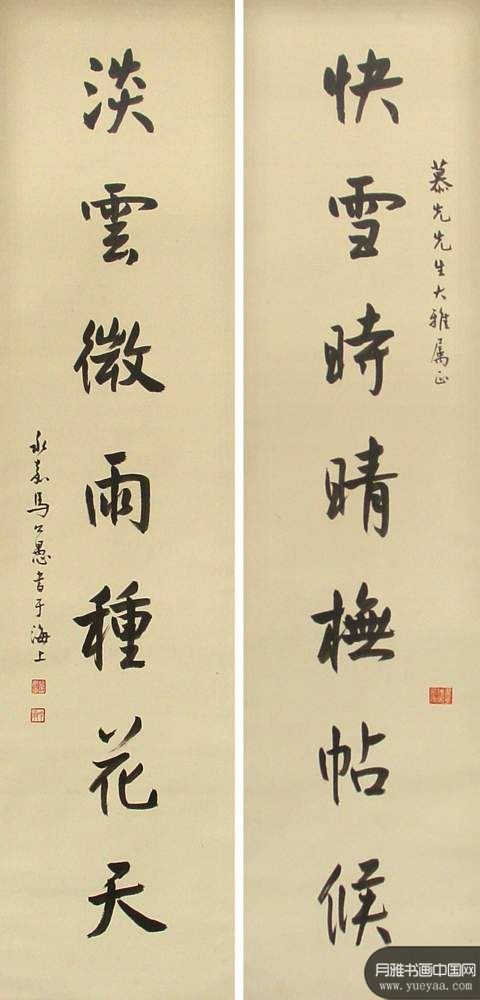 慕先先生大雅属正
快雪時晴橅帖候
淡雲微雨種花天
永嘉馬公愚書于海上
月雅书画中国网
www.yueyaa.com